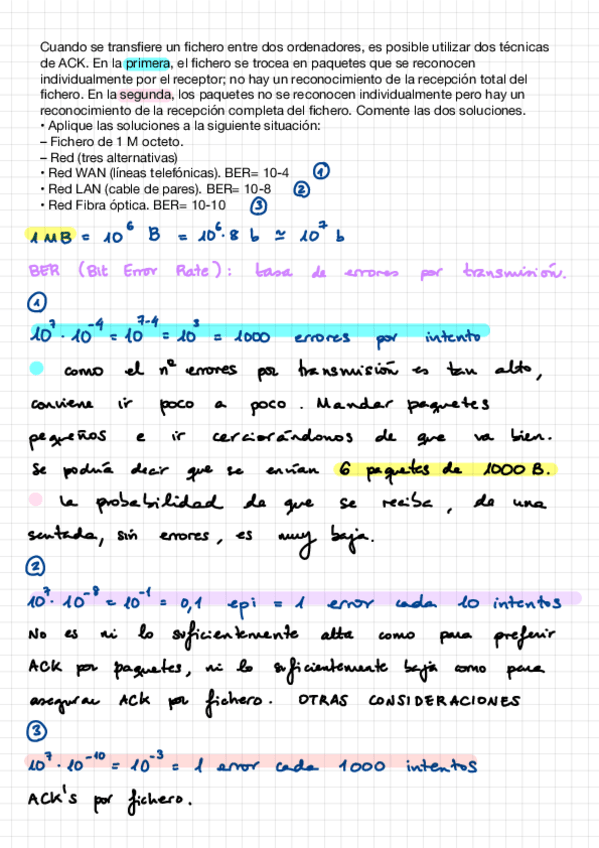 Cuando se transfiere un fichero entre dos ordenadores, es posible utilizar dos técnicas
de ACK. En la primera, el fichero se trocea en paquetes que se reconocen
individualmente por el receptor; no hay un reconocimiento de la recepción total del
fichero. En la segunda, los paquetes no se reconocen individualmente pero hay un
reconocimiento de la recepción completa del fichero. Comente las dos soluciones.
• Aplique las soluciones a la siguiente situación:
– Fichero de 1 M octeto.
– Red (tres alternativas)
• Red WAN (líneas telefónicas). BER= 10-4 ①
• Red LAN (cable de pares). BER= 10-8 ②
• Red Fibra óptica. BER= 10-10 ③
1 MB = 10⁶ B = 10⁶·8 b ≃ 10⁷ b
BER (Bit Error Rate): tasa de errores por transmisión.
①
10⁷·10⁻⁴ = 10⁷⁻⁴ = 10³ = 1000 errores por intento
como el nº errores por transmisión es tan alto,
conviene ir poco a poco. Mandar paquetes
pequeños e ir cerciorándonos de que va bien.
Se podría decir que se envían 6 paquetes de 1000 B.
La probabilidad de que se reciba, de una
sentada, sin errores, es muy baja.
②
10⁷·10⁻⁸ = 10⁻¹ = 0,1 epi = 1 error cada 10 intentos
No es ni lo suficientemente alta como para preferir
ACK por paquetes, ni lo suficientemente baja como para
asegurar ACK por fichero. OTRAS CONSIDERACIONES
③
10⁷·10⁻¹⁰ = 10⁻³ = 1 error cada 1000 intentos
ACK's por fichero.